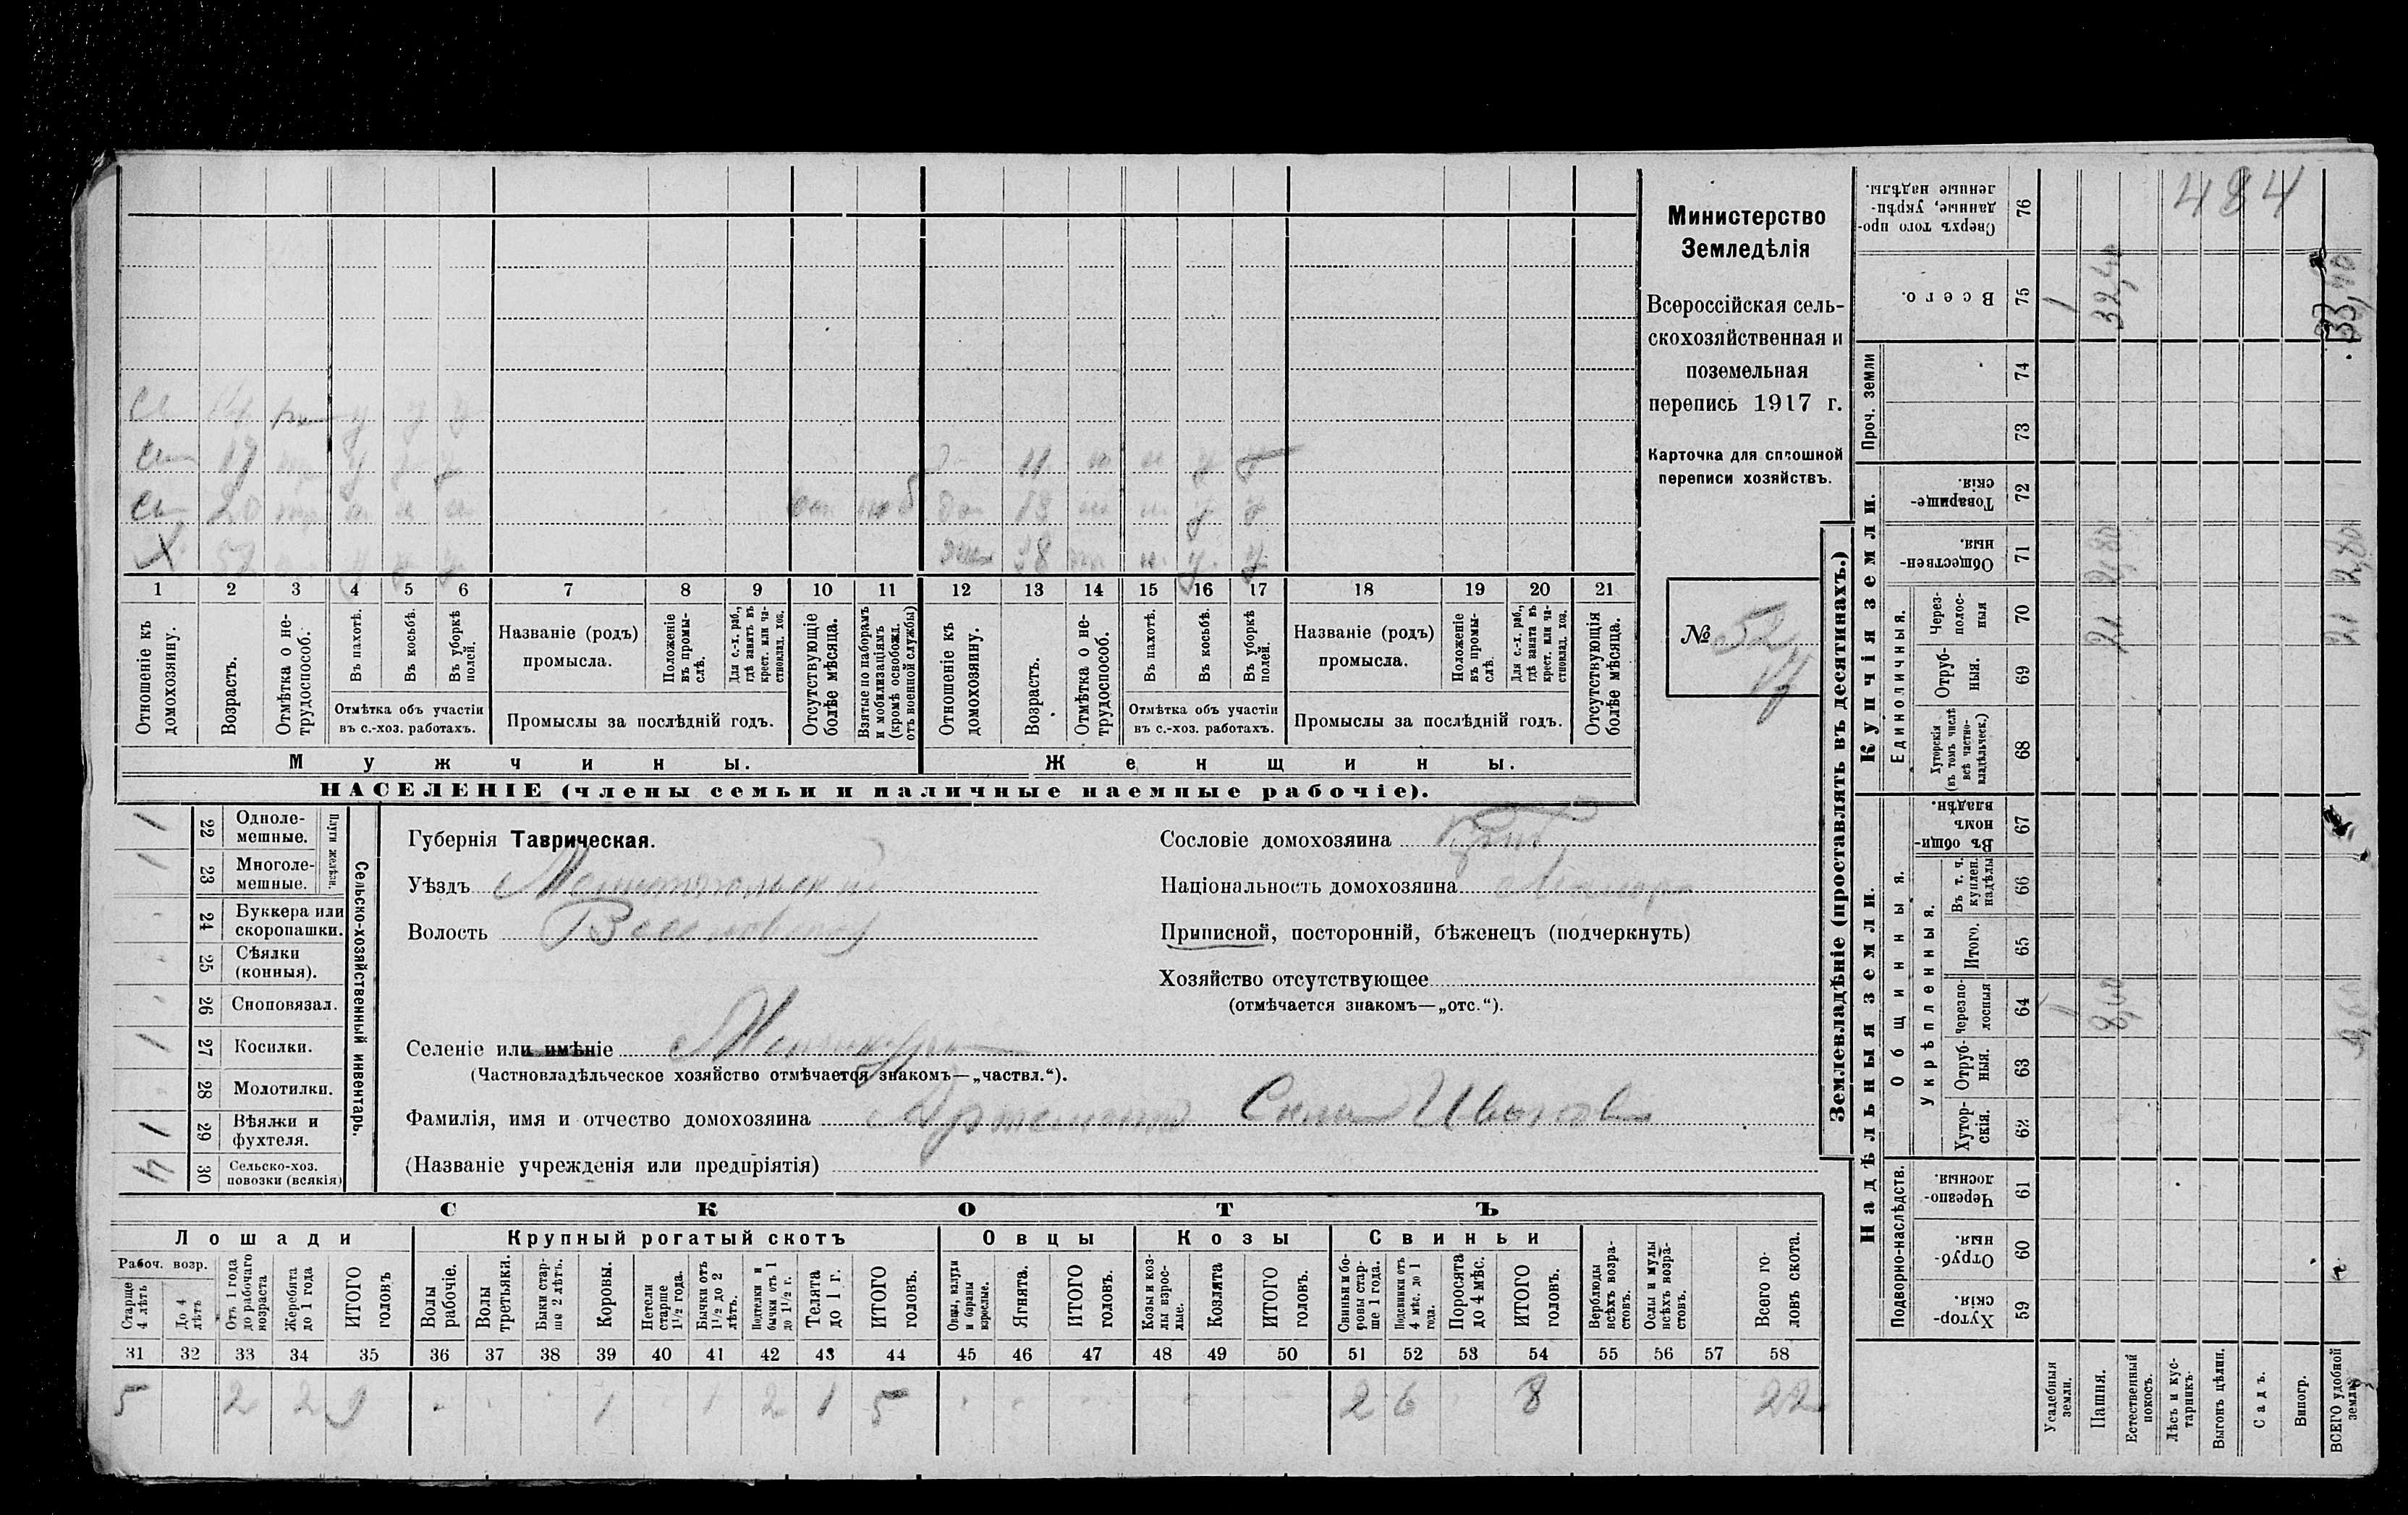 Министерство
Земледѣлія
Всероссійская сель-
скохозяйственная и
поземельная
перепись 1917 г.
Карточка для сплошной
переписи хозяйствъ.
№ 52
484
X
Сы 20
Сы 19
11
13
38
1 2 3 4 5 6 7 8 9 10 11 12 13 14 15 16 17 18 19 20 21
Отношеніе къ домохозяину.
Возрастъ.
Отмѣтка о не-трудоспособ.
Въ пахотѣ.
Въ косьбѣ.
Въ уборкѣ полей.
Отмѣтка объ участіи
въ с.-хоз. работахъ.
Названіе (родъ)
промысла.
Положеніе въ промы-слѣ.
Для с.-х. раб., гдѣ занятъ въ крест. или ча-стновлад. хоз.
Промыслы за послѣдній годъ.
Отсутствующіе болѣе мѣсяца.
Взятые по наборамъ и мобилизаціямъ (кромѣ освобожд. отъ военной службы)
Отношеніе къ домохозяину.
Возрастъ.
Отмѣтка о не-трудоспособ.
Въ пахотѣ.
Въ косьбѣ.
Въ уборкѣ полей.
Отмѣтка объ участіи
въ с.-хоз. работахъ.
Названіе (родъ)
промысла.
Положеніе въ промы-слѣ.
Для с.-х. раб., гдѣ занята въ крест. или ча-стновлад. хоз.
Промыслы за послѣдній годъ.
Отсутствующія болѣе мѣсяца.
Мужчины.
Женщины.
НАСЕЛЕНІЕ (члены семьи и наличные наемные рабочіе).
Сельско-хозяйственный инвентарь.
Плуги желѣзн.
1 22 Одноле-мешные.
1 23 Многоле-мешные.
24 Буккера или скоропашки.
25 Сѣялки (конныя).
26 Сноповязал.
1 27 Косилки.
28 Молотилки.
1 29 Вѣялки и фухтеля.
4 30 Сельско-хоз. повозки (всякія)
Губернія Таврическая.
Уѣздъ Мелитопольскій
Волость Веселовская
Селеніе или имѣніе
(Частновладѣльческое хозяйство отмѣчается знакомъ—„частвл.“).
Фамилія, имя и отчество домохозяина
(Названіе учрежденія или предпріятія)
Сословіе домохозяина
Національность домохозяина
Приписной, посторонній, бѣженецъ (подчеркнуть)
Хозяйство отсутствующее
(отмѣчается знакомъ—„отс.“).
СКОТЪ
Лошади
Крупный рогатый скотъ
Овцы
Козы
Свиньи
Рабоч. возр.
Старше 4 лѣтъ
До 4 лѣтъ
Отъ 1 года до рабочаго возраста
Жеребята до 1 года
ИТОГО головъ
Волы рабочіе.
Волы третьяки.
Быки стар-ше 2 лѣтъ.
Коровы.
Нетели старше 1½ года.
Бычки отъ 1½ до 2 лѣтъ.
Подтелки и бычки отъ 1 до 1½ г.
Телята до 1 г.
ИТОГО головъ.
Овцы, валухи и бараны взрослые.
Ягнята.
ИТОГО головъ.
Козы и коз-лы взрос-лые.
Козлята
ИТОГО головъ.
Свиньи и бо-ровы стар-ше 1 года.
Подсвинки отъ 4 мѣс. до 1 года.
Поросята до 4 мѣс.
ИТОГО головъ.
Верблюды всѣхъ возра-стовъ.
Ослы и мулы всѣхъ возра-стовъ.
Всего го-ловъ скота.
31 32 33 34 35 36 37 38 39 40 41 42 43 44 45 46 47 48 49 50 51 52 53 54 55 56 57 58
5 2 2 9 1 1 2 1 5 2 6 8 22
Землевладѣніе (проставлять въ десятинахъ.)
Надѣльныя земли.
Купчія земли.
Проч. земли
Подворно-наслѣдств.
Общинныя.
Укрѣпленныя.
Единоличныя.
76 Сверхъ того про-данные, укрѣп-ленные надѣлы.
75 Всего. 1 32,40 33,40
74
73
72 Товарище-скія.
71 Обществен-ныя. 2,80 2,80
70 Через-полос-ныя 21 21
69 Отруб-ныя.
68 Хуторскія (въ томъ числѣ всѣ частно-владѣльческ.)
67 Въ общин-номъ владѣн.
66 Въ т. ч. куплен. надѣлы
65 Итого.
64 Черезпо-лосныя 1 8,60 9,60
63 Отруб-ныя.
62 Хутор-скія.
61 Черезпо-лосныя.
60 Отруб-ныя.
59 Хутор-скія.
Усадебныя земли.
Пашня.
Естественный покосъ.
Лѣсъ и кус-тарникъ.
Выгонъ цѣлин.
Садъ.
Виногр.
ВСЕГО удобной земли.